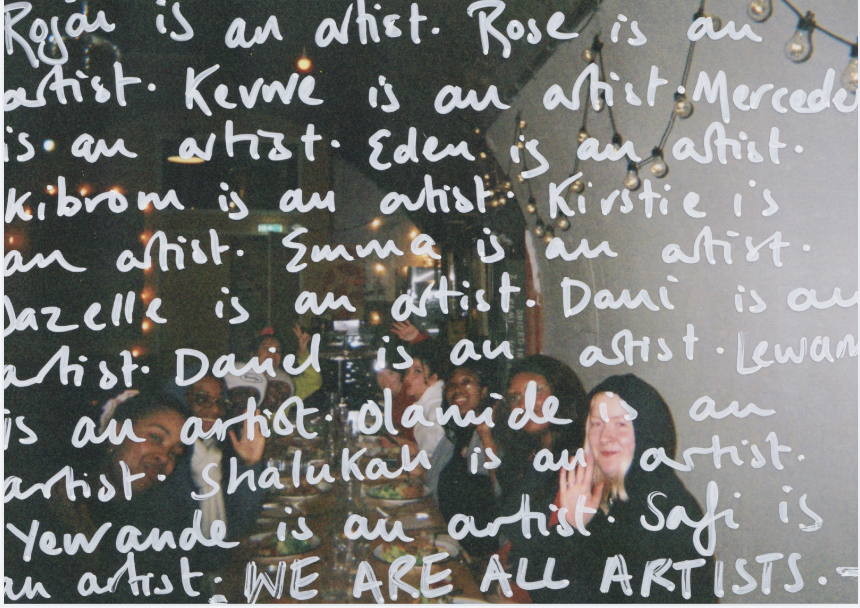 Rojan is an artist. Rose is an
artist. Kevwe is an artist. Mercedes
is an artist. Eden is an artist.
Kibrom is an artist. Kirstie is
an artist. Emma is an artist.
Jazelle is an artist. Dani is an
artist. Daniel is an artist. Lewam
is an artist. Olamide is an
artist. Shalukah is an artist.
Yewande is an artist. Safi is
an artist. WE ARE ALL ARTISTS. -